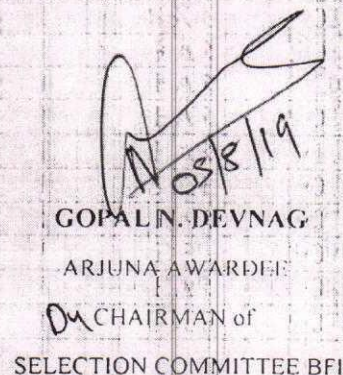 05/8/19
GOPAL N. DEVNAG
ARJUNA AWARDEE
Dy CHAIRMAN of
SELECTION COMMITTEE BFI